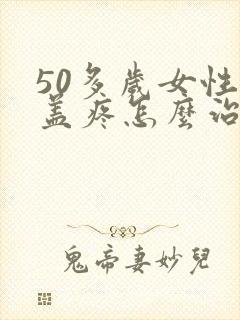 50多歲女性
蓋疼怎麼治
鬼帝妻妙兒